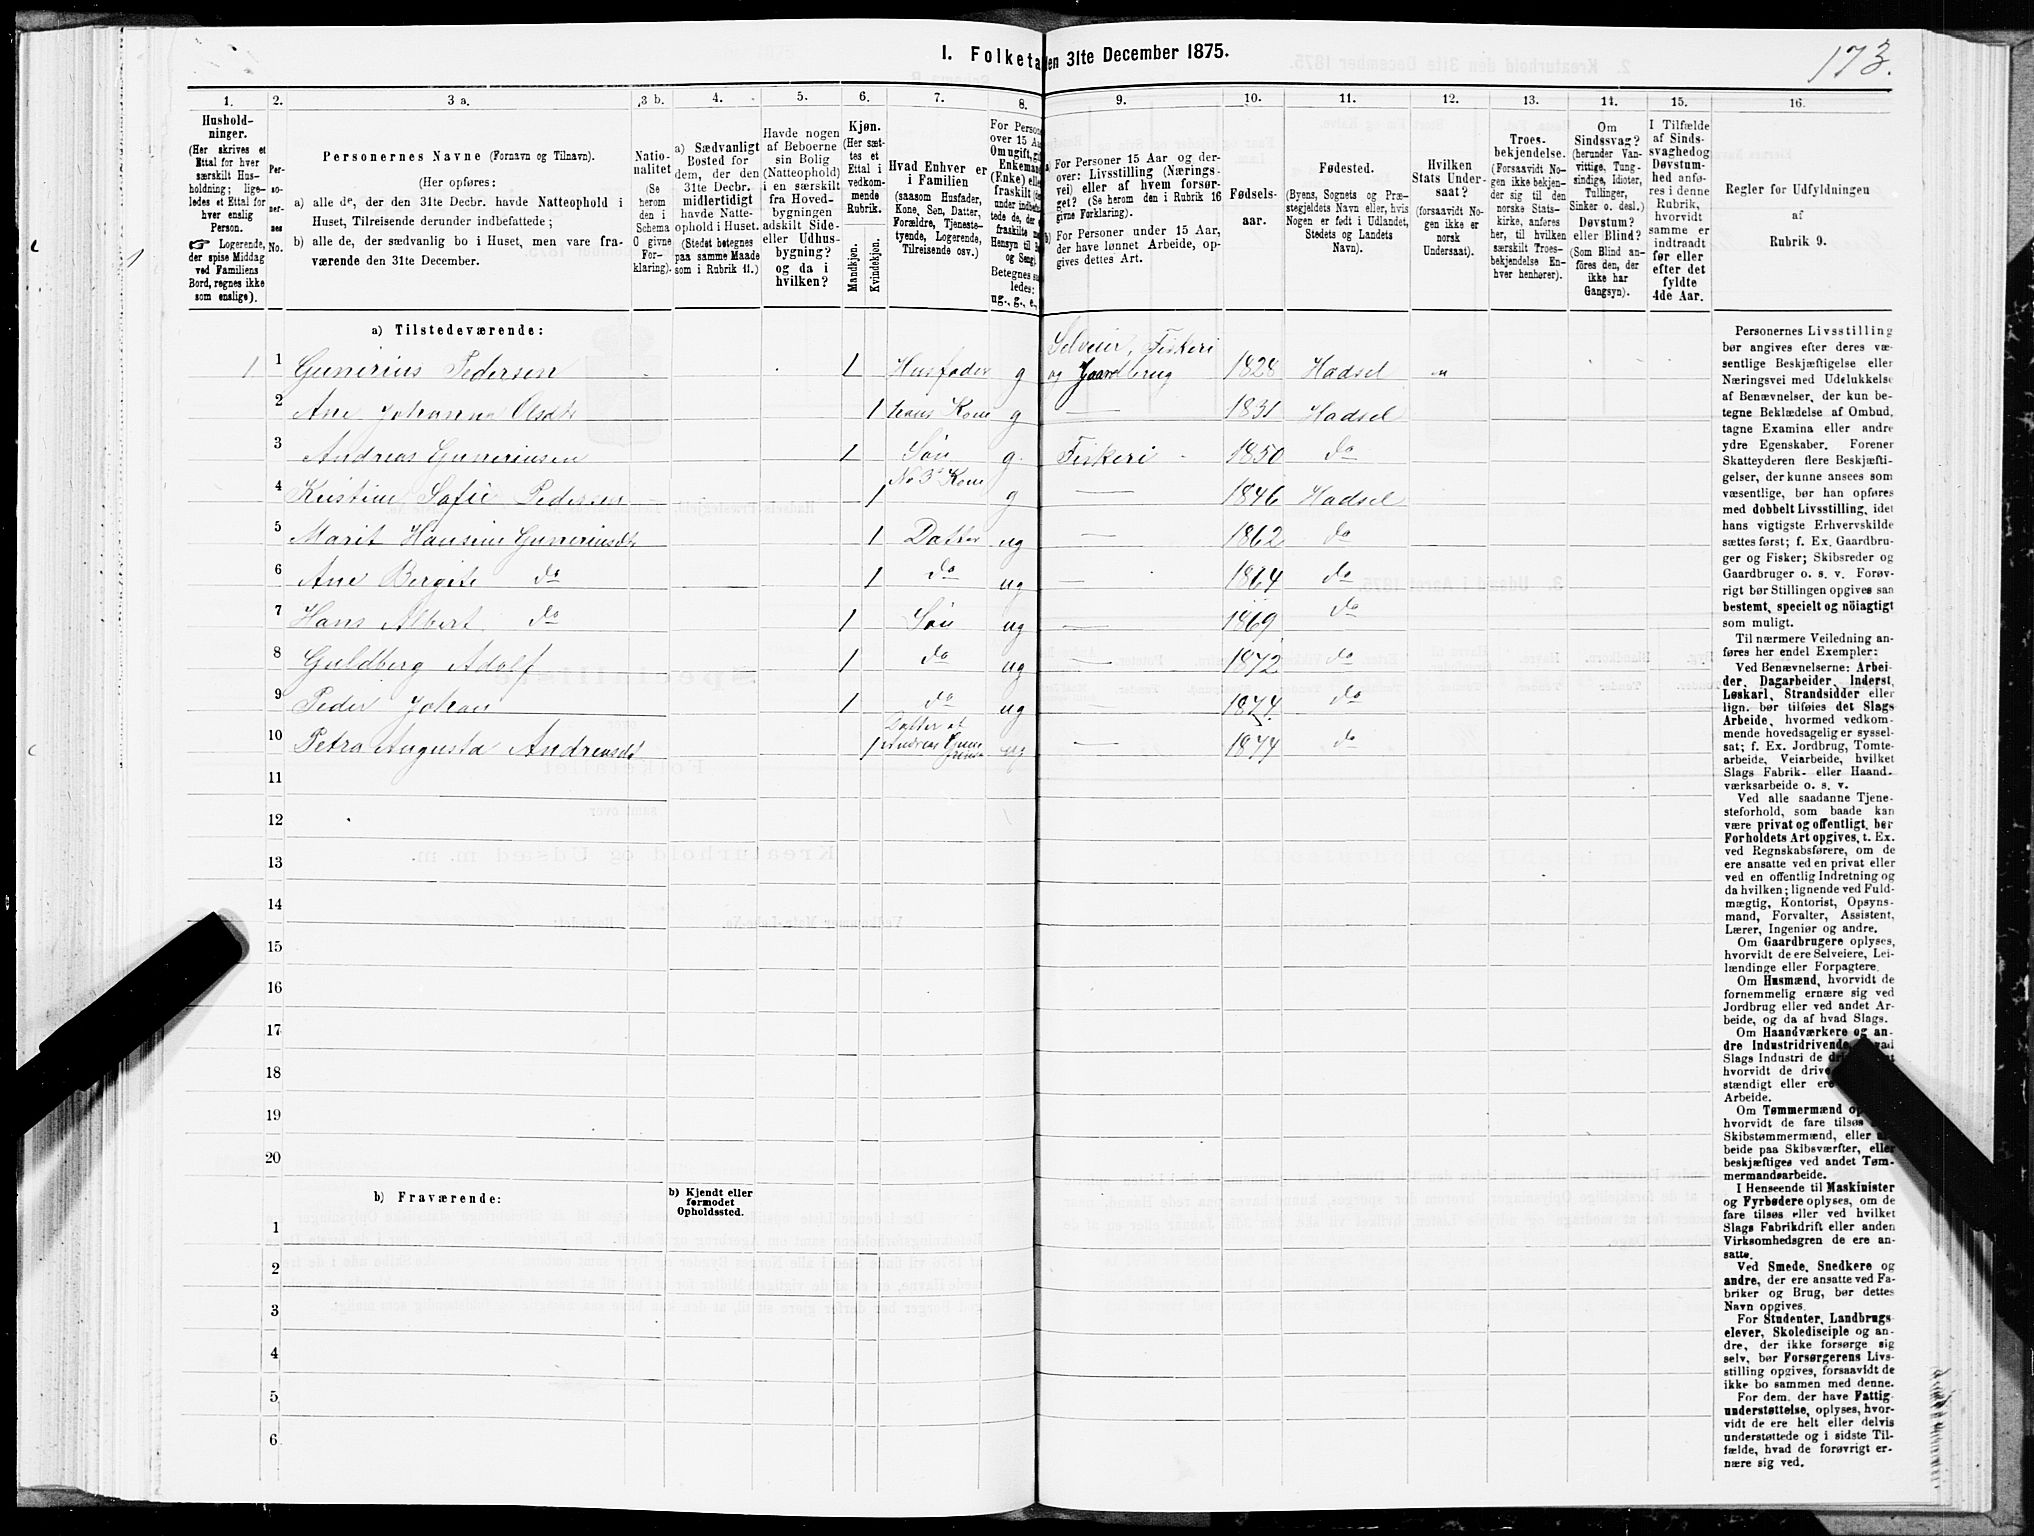 I. Folketa
den 31te December 1875.
173.
1.
2.
3 a.
3 b.
4.
5.
6.
7.
8.
9.
10.
11.
12.
13.
14.
15.
16.
Hushold-
ninger.
(Her skrives et
Ettal for hver
særskilt Hus-
holdning; lige-
ledes et Ettal for
hver enslig
Person.
☞ Logerende,
der spise Middag
ved Familiens
Bord, regnes ikke
som enslige).
Per-
so-
ner-
nes
No.
Personernes Navne (Fornavn og Tilnavn).
(Her opføres:
a) alle de, der den 31te Decbr. havde Natteophold i
Huset, Tilreisende derunder indbefattede;
b) alle de, der sædvanlig bo i Huset, men vare fra-
værende den 31te December.
Natio-
nalitet
(Se
herom
den i
Schema
O givne
For-
klaring).
a) Sædvanligt
Bosted for
dem, der den
31te Decbr.
midlertidigt
havde Natte-
ophold i Huset.
(Stedet betegnes
paa samme Maade
som i Rubrik 11.)
Havde nogen
af Beboerne
sin Bolig
(Natteophold)
i en særskilt
fra Hoved-
bygningen
adskilt Side-
eller Udhus-
bygning?
og da i
hvilken?
Kjøn.
(Her sæt-
tes et
Ettal i
vedkom-
mende
Rubrik.
Mandkjøn.
Kvindekjøn.
Hvad Enhver er
i Familien
(saasom Husfader,
Kone, Søn, Datter,
Forældre, Tjeneste-
tyende, Logerende,
Tilreisende osv.)
For Persone
over 15 Aar
Om ugift, gift
Enkemand
(Enke) eller
fraskilt
Betegnes saa-
ledes:
ug., g., e.,
a) For Personer 15 Aar og der-
over: Livsstilling (Nærings-
vei) eller af hvem forsør-
get? (Se herom den i Rubrik 16
givne Forklaring).
b) For Personer under 15 Aar,
der have lønnet Arbeide, op-
gives dettes Art.
Fødsels-
aar.
Fødested.
(Byens, Sognets og Præ-
stegjeldets Navn eller, hvis
Nogen er født i Udlandet,
Stedets og Landets
Navn).
Hvilken
Stats Under-
saat?
(forsaavidt No-
gen ikke er
norsk
Undersaat).
Troes-
bekjendelse.
(Forsaavidt No-
gen ikke bekjen-
der sig til den
norske Stats-
kirke, anføres
her, til hvilken
særskilt Troes-
bekjendelse En-
hver henhører).
Om
Sindssvag?
(herunder Van-
vittige, Tung-
sindige, Idioter,
Tullinger,
Sinker o. desl.)
Døvstum?
eller Blind?
(Som Blind an-
føres den, der
ikke har
Gangsyn).
I Tilfælde
af Sinds-
svaghed og
Døvstum-
hed anfø-
res i denne
Rubrik,
hvorvidt
samme er
indtraadt
før eller
efter det
fyldte
4de Aar.
Regler for Udfyldningen
af
Rubrik 9.
a) Tilstedeværende:
1 1 Gunerius Pedersen 1 Husfader g Selveier, Fiskeri og Gaardbrug 1828 Hadsel
2 Ane Johanna Olsdtr 1 hans Kone g — 1831 Hadsel
3 Andreas Guneriusen 1 Søn g Fiskeri 1850 do
4 Kristine Sofie Pedersen 1 No 3s Kone g — 1846 Hadsel
5 Marit Hansine Guneriusdtr 1 Datter ug — 1862 do
6 Ane Bergite do 1 do ug — 1864 do
7 Hans Albert do 1 Søn ug — 1869 do
8 Guldberg Adolf 1 do ug 1872 do
9 Peder Johan 1 do ug 1874 do
10 Petra Augusta Andreasdt 1 Datter af Andreas ug — 1874 do
11
12
13
14
15
16
17
18
19
20
b) Fraværende:
b) Kjendt eller
formodet
Opholdssted.
1
2
3
4
5
6
Personernes Livsstilling
bør angives efter deres væ-
sentlige Beskjæftigelse eller
Næringsvei med Udelukkelse
af Benævnelser, der kun be-
tegne Beklædelse af Ombud,
tagne Examina eller andre
ydre Egenskaber. Forener
Skatteyderen flere Beskjæfti-
gelser, der kunne ansees som
væsentlige, bør han opføres
med dobbelt Livsstilling, idet
hans vigtigste Erhvervskilde
sættes først; f. Ex. Gaardbru-
ger og Fisker; Skibsreder og
Gaardbruger o. s. v. Forøv-
rigt bør Stillingen opgives saa
bestemt, specielt og nöiagtigt
som muligt.
Til nærmere Veiledning an-
føres her endel Exempler:
Ved Benævnelserne: Arbei-
der, Dagarbeider, Inderst,
Løskarl, Strandsidder eller
lign. bør tilføies det Slags
Arbeide, hvormed vedkom-
mende hovedsagelig er syssel-
sat; f. Ex. Jordbrug, Tomte-
arbeide, Veiarbeide, hvilket
Slags Fabrik- eller Haand-
værksarbeide o. s. v.
Ved alle saadanne Tjene-
steforhold, som baade kan
være privat og offentligt, bør
Forholdets Art opgives, t. Ex.
ved Regnskabsførere, om de
ere ansatte ved en privat eller
ved en offentlig Indretning og
da hvilken; lignende ved Fuld-
mægtig, Kontorist, Opsyns-
mand, Forvalter, Assistent,
Lærer, Ingeniør og andre.
Om Gaardbrugere oplyses,
hvorvidt de ere Selveiere, Lei-
lændinge eller Forpagtere.
Om Husmænd, hvorvidt de
fornemmelig ernære sig ved
Jordbrug eller ved andet Ar-
beide, og da af hvad Slags.
Om Haandværkere og an-
dre Industridrivende,
Slags Industri de
hvorvidt de drive
stændigt eller ere
Arbeide.
Om Tømmermænd
hvorvidt de fare tilsøs
Skibstømmermænd, eller
beide paa Skibsværfter, eller
beskjæftiges ved andet Tøm-
mermandsarbeide.
I Henseende til Maskinister
og Fyrbødere oplyses, om de
fare tilsøs eller ved hvilket
Slags Fabrikdrift eller anden
Virksomhedsgren de ere an-
satte.
Ved Smede, Snedkere og
andre, der ere ansatte ved Fa-
briker og Brug, bør dettes
Navn opgives.
For Studenter, Landbrugs-
elever, Skoledisciple og an-
dre, der ikke forsørge sig
selv, bør Forsørgerens Livs-
stilling opgives, forsaavidt de
ikke bo sammen med denne.
For dem, der have Fattig-
understøttelse, oplyses, hvor-
vidt de ere helt eller delvis
understøttede og i sidste Til-
fælde, hvad de forøvrigt er-
nære sig ved.